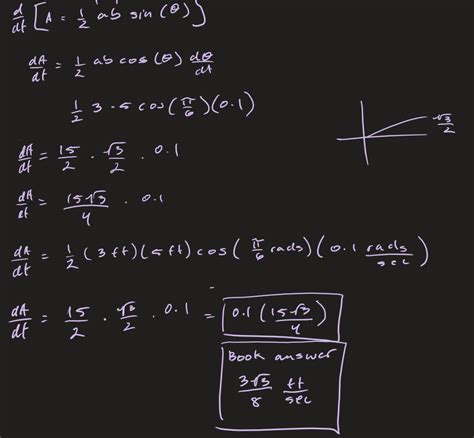 d/dt [A = 1/2 ab sin(θ)]
dA/dt = 1/2 ab cos(θ) dθ/dt
1/2 3·5 cos(π/6)(0.1)
√3/2
dA/dt = 15/2 · √3/2 · 0.1
dA/dt = 15√3/4 · 0.1
dA/dt = 1/2 (3ft)(5ft) cos(π/6 rads)(0.1 rads/sec)
dA/dt = 15/2 · √3/2 · 0.1 = 0.1(15√3/4)
Book answer
3√3/8 ft/sec